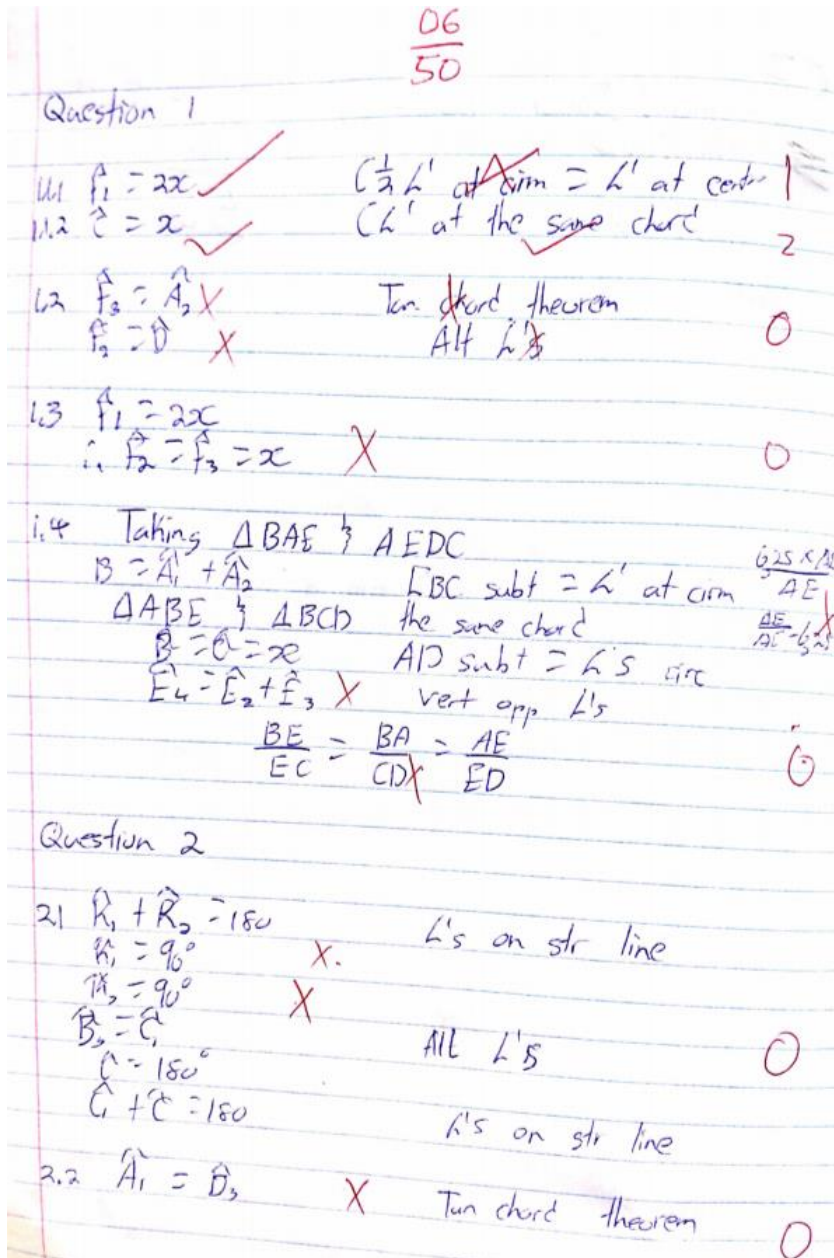 06
50
Question 1
1.1.1 F̂₁ = 2x (½ L' at cirm = L' at centr 1
1.1.2 Ĉ = x (L' at the same chord 2
1.2 F̂₃ = Â₂ Tan. chord theurem
F̂₂ = D̂ Alt L's 0
1.3 F̂₁ = 2x
∴ F̂₂ = F̂₃ = x 0
1.4 Taking ΔBAE & AEDC
B = Â₁ + Â₂ [BC subt = L' at cirm
ΔABE & ΔBCD the same chord
B̂ = Ĉ = x AD subt = L's circ
Ê₄ = Ê₂ + Ê₃ vert opp L's
BE/EC = BA/CD = AE/ED 0
Question 2
2.1 R̂₁ + R̂₂ = 180 L's on str line
R̂₁ = 90°
= 90°
B̂₂ = Ĉ₁ Alt L's 0
Ĉ = 180°
Ĉ₁ + Ĉ = 180 L's on str line
2.2 Â₁ = D̂₃ Tan chord theorem 0